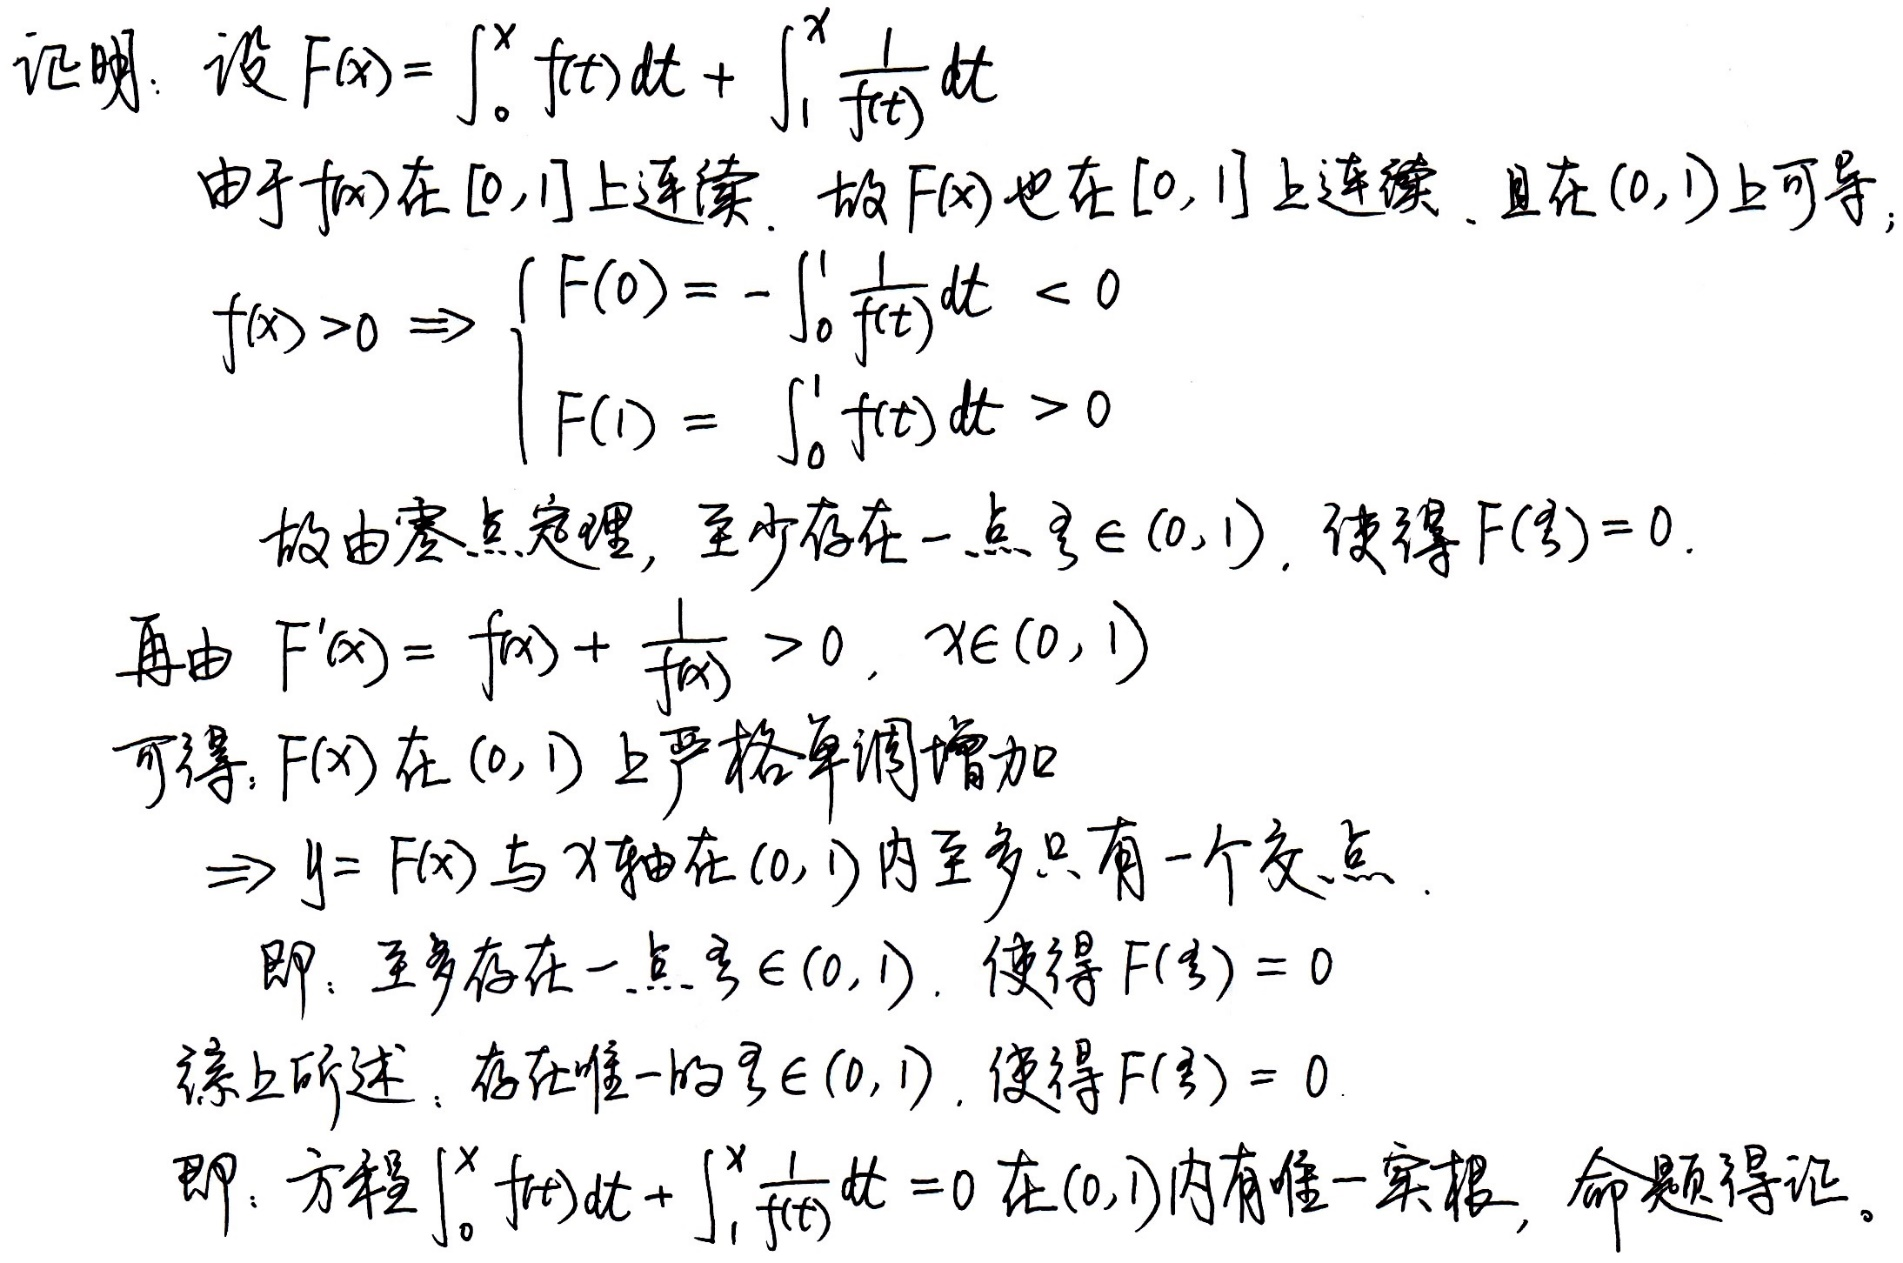 证明: 设 F(x) = ∫₀ˣ f(t) dt + ∫₁ˣ 1/f(t) dt
由于 f(x) 在 [0,1] 上连续. 故 F(x) 也在 [0,1] 上连续、且在 (0,1) 上可导;
f(x) > 0 ⇒ { F(0) = - ∫₀¹ 1/f(t) dt < 0
F(1) = ∫₀¹ f(t) dt > 0
故由零点定理, 至少存在一点 ξ ∈ (0,1). 使得 F(ξ) = 0.
再由 F'(x) = f(x) + 1/f(x) > 0, x ∈ (0,1)
可得: F(x) 在 (0,1) 上严格单调增加
⇒ y = F(x) 与 x 轴在 (0,1) 内至多只有一个交点.
即: 至多存在一点 ξ ∈ (0,1). 使得 F(ξ) = 0
综上所述: 存在唯一的 ξ ∈ (0,1). 使得 F(ξ) = 0.
即: 方程 ∫₀ˣ f(t) dt + ∫₁ˣ 1/f(t) dt = 0 在 (0,1) 内有唯一实根, 命题得证。